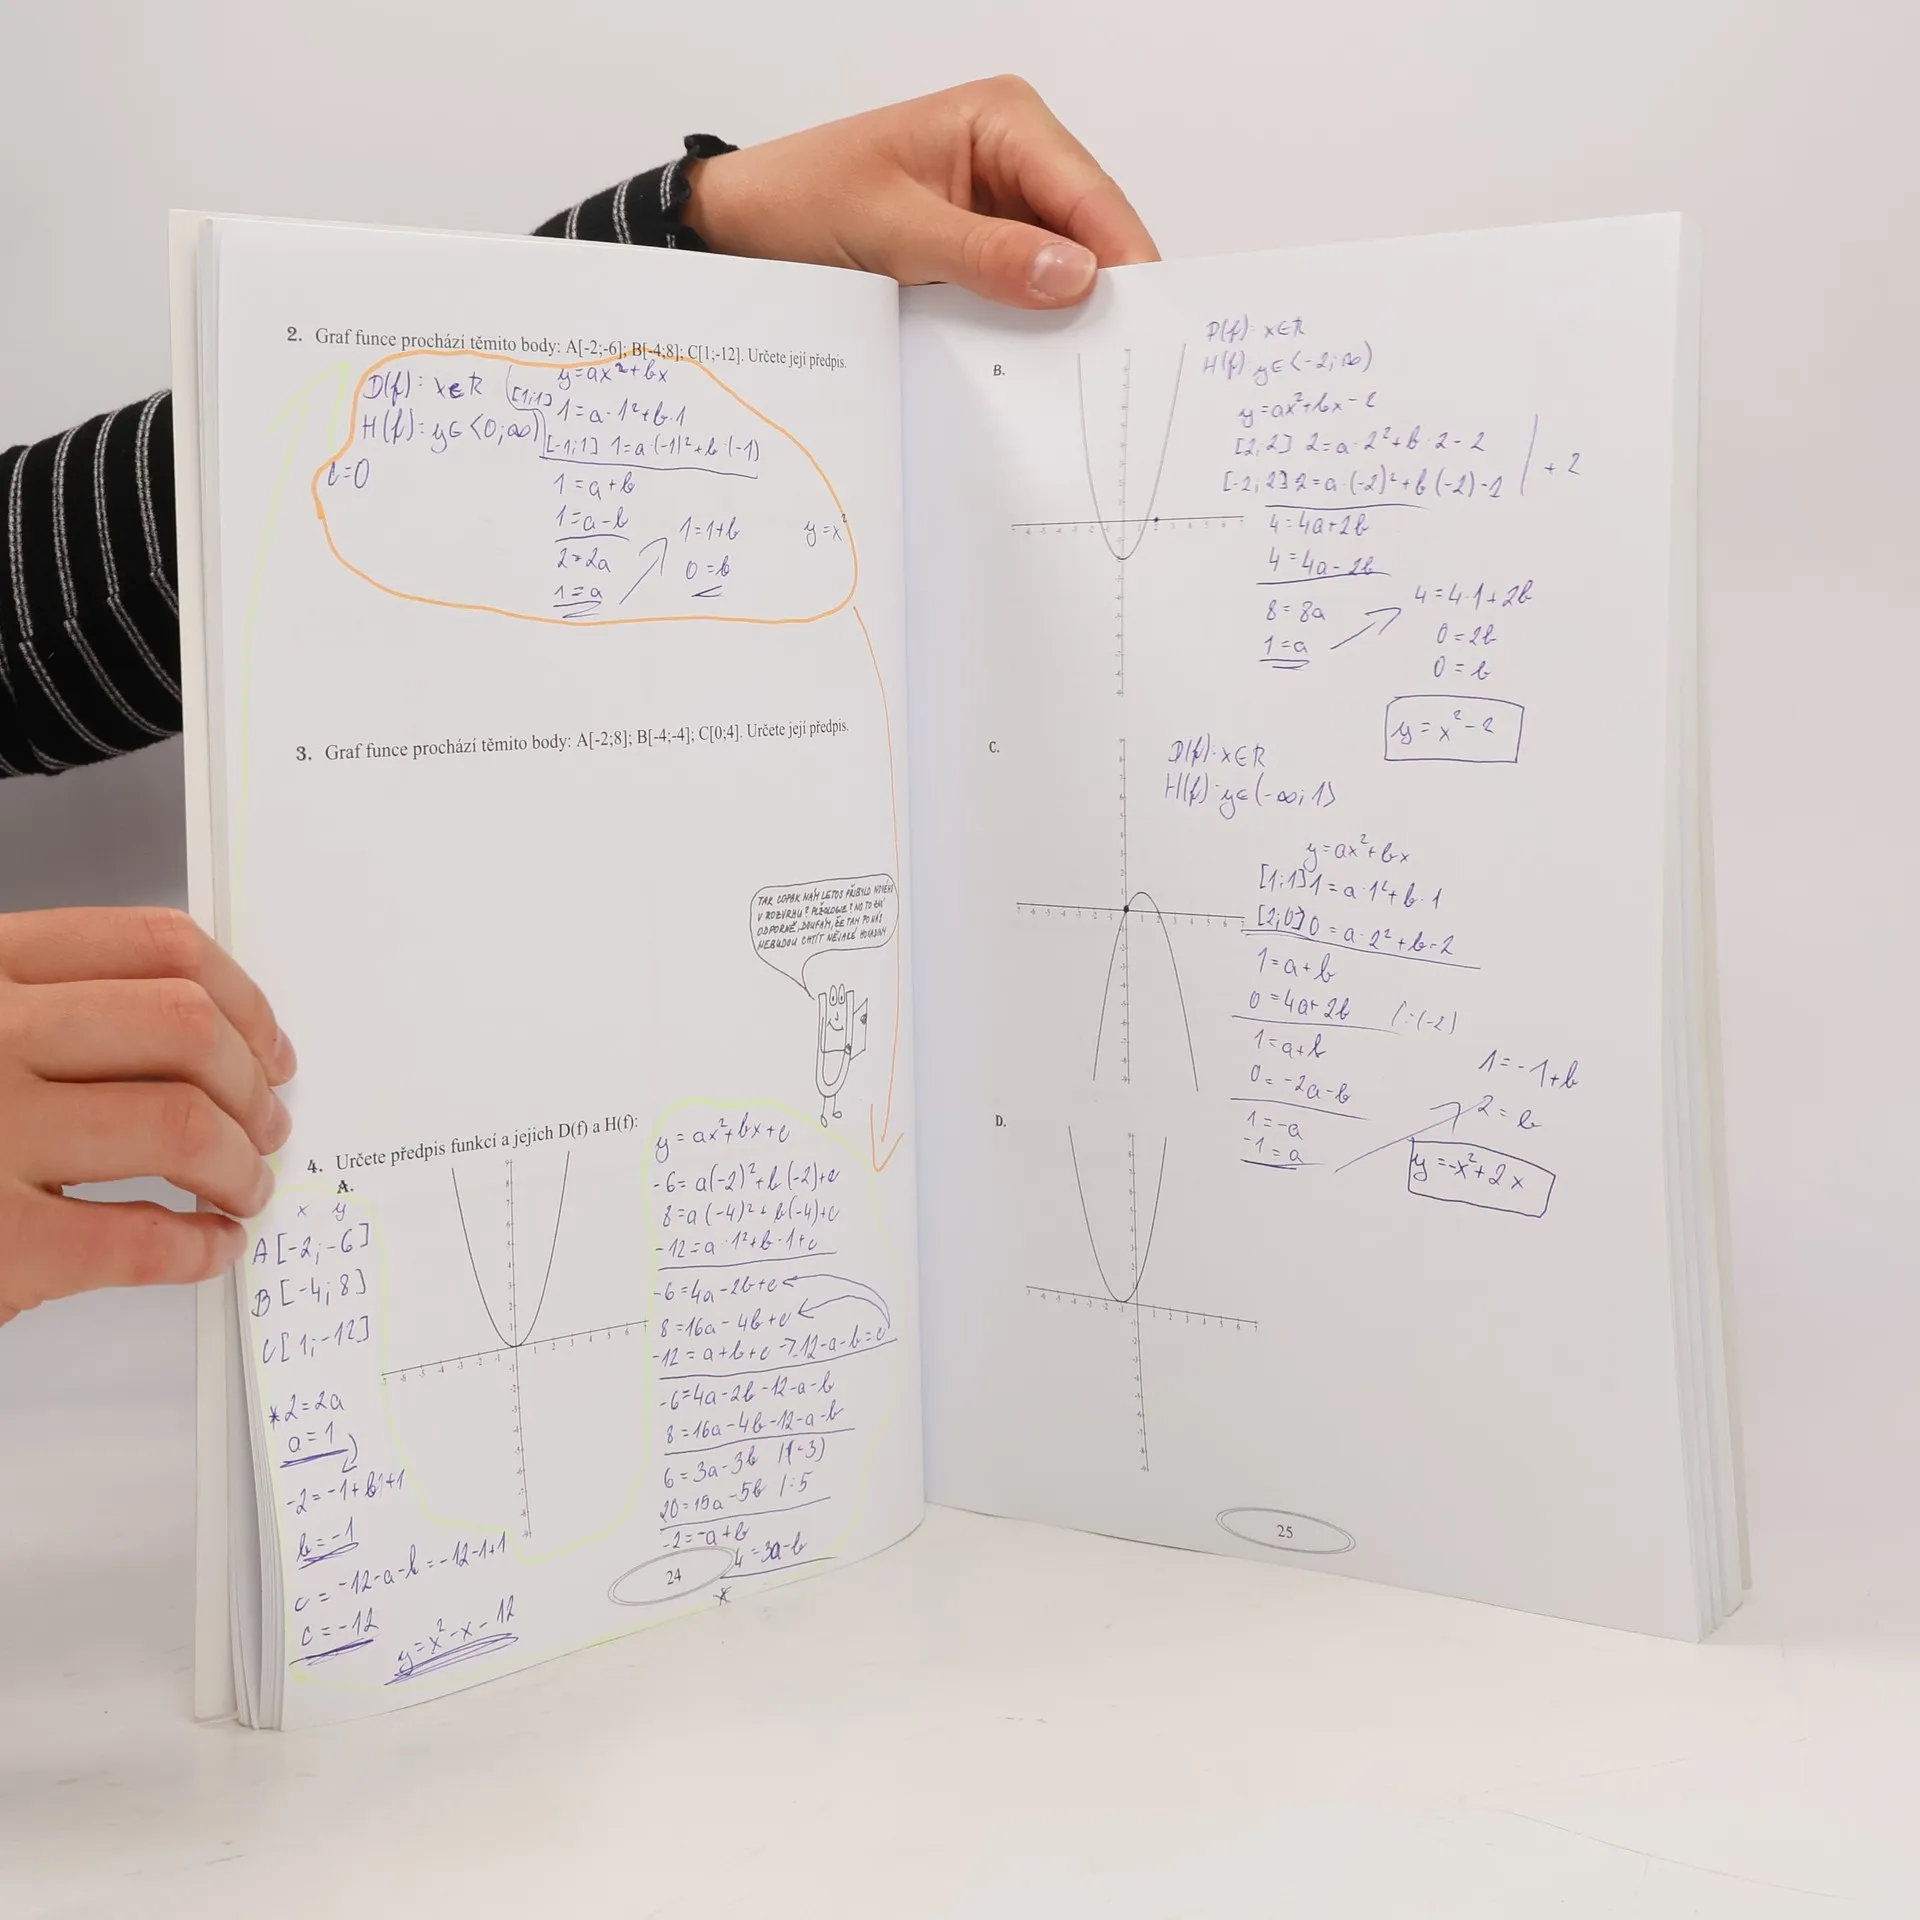 2. Graf funce prochází těmito body: A[-2;-6]; B[-4;8]; C[1;-12]. Určete její předpis.
D(f): x∈R
H(f)=y∈<0;∞)
c=0
y=ax²+bx
[1;1] 1=a·1²+b·1
[-1;1] 1=a·(-1)²+b·(-1)
1=a+b
1=a-b
2=2a
1=a
1=1+b
0=b
y=x²
3. Graf funce prochází těmito body: A[-2;8]; B[-4;-4]; C[0;4]. Určete její předpis.
TAK COPAK NÁM LETOS PŘIBYLO NOVÉHO
V ROZVRHU? PLŽOLOGIE? NO TO ZNÍ
ODPORNĚ, DOUFÁM, ŽE TAM PO NÁS
NEBUDOU CHTÍT NĚJAKÉ HOVADINY
4. Určete předpis funkcí a jejich D(f) a H(f):
A.
x y
A[-2;-6]
B[-4;8]
C[1;-12]
*2=2a
a=1
-2=-1+b /+1
b=-1
c=-12-a-b=-12-1+1
c=-12
y=x²-x-12
y=ax²+bx+c
-6=a(-2)²+b(-2)+c
8=a(-4)²+b(-4)+c
-12=a·1²+b·1+c
-6=4a-2b+c
8=16a-4b+c
-12=a+b+c→-12-a-b=c
-6=4a-2b-12-a-b
8=16a-4b-12-a-b
6=3a-3b /(-3)
20=15a-5b /:5
-2=-a+b
4=3a-b
*
24
B.
D(f): x∈R
H(f): y∈<-2;∞)
y=ax²+bx-2
[2;2] 2=a·2²+b·2-2
[-2;2] 2=a·(-2)²+b(-2)-2
+2
4=4a+2b
4=4a-2b
8=8a
1=a
4=4·1+2b
0=2b
0=b
y=x²-2
C.
D(f): x∈R
H(f): y∈(-∞;1>
y=ax²+bx
[1;1] 1=a·1²+b·1
[2;0] 0=a·2²+b·2
1=a+b
0=4a+2b /:(-2)
1=a+b
0=-2a-b
1=-a
-1=a
1=-1+b
2=b
y=-x²+2x
D.
25